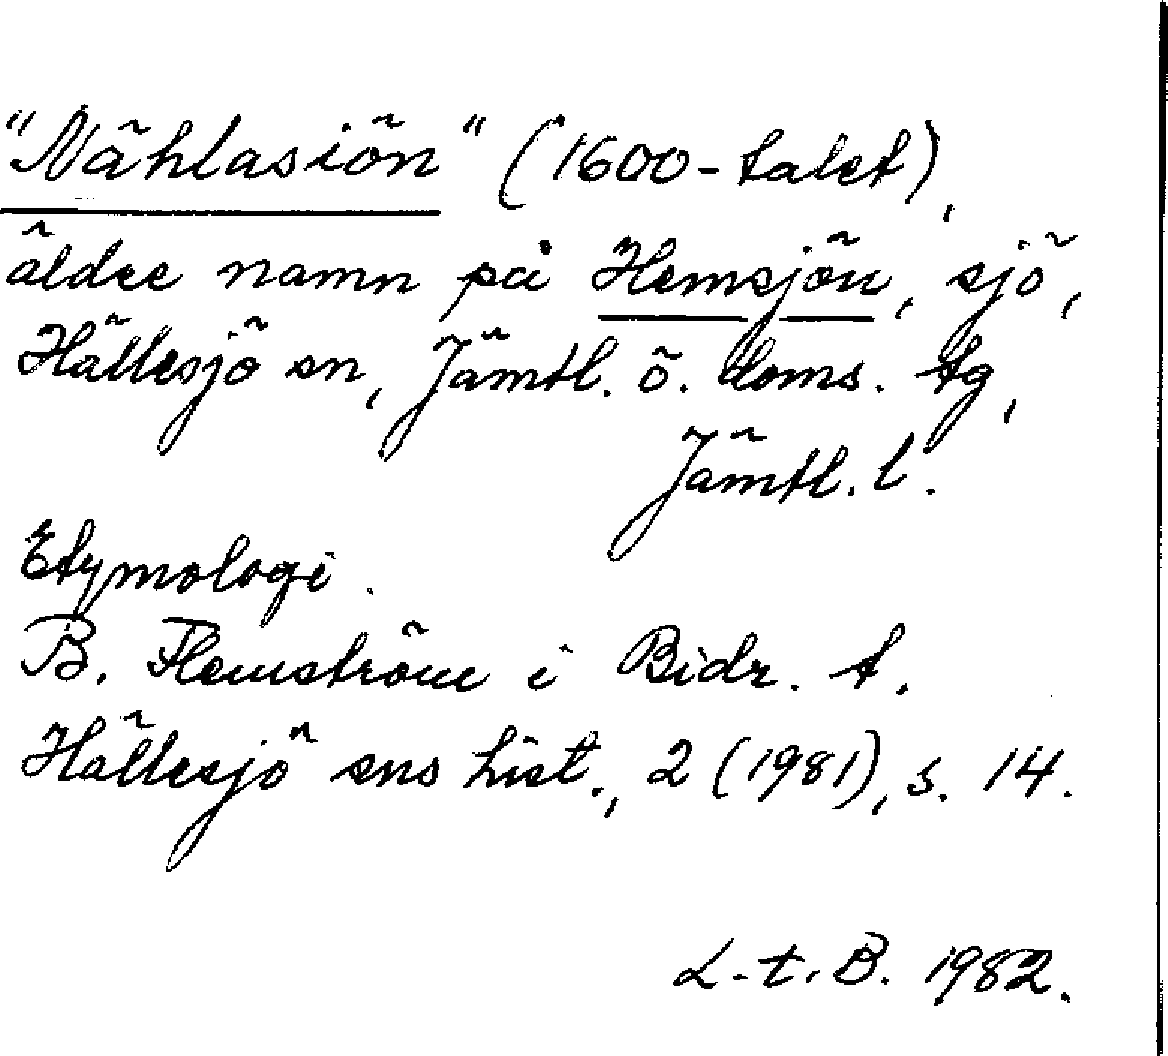 "Nählasiön" (1600-talet),
äldre namn på Hemsjön, sjö,
Hällesjö sn, Jämtl. ö. doms. tg,
Jämtl. l.
Etymologi.
B. Flemström i Bidr. t.
Hällesjö sns hist., 2 (1981), s. 14.
L-t. B. 1982.